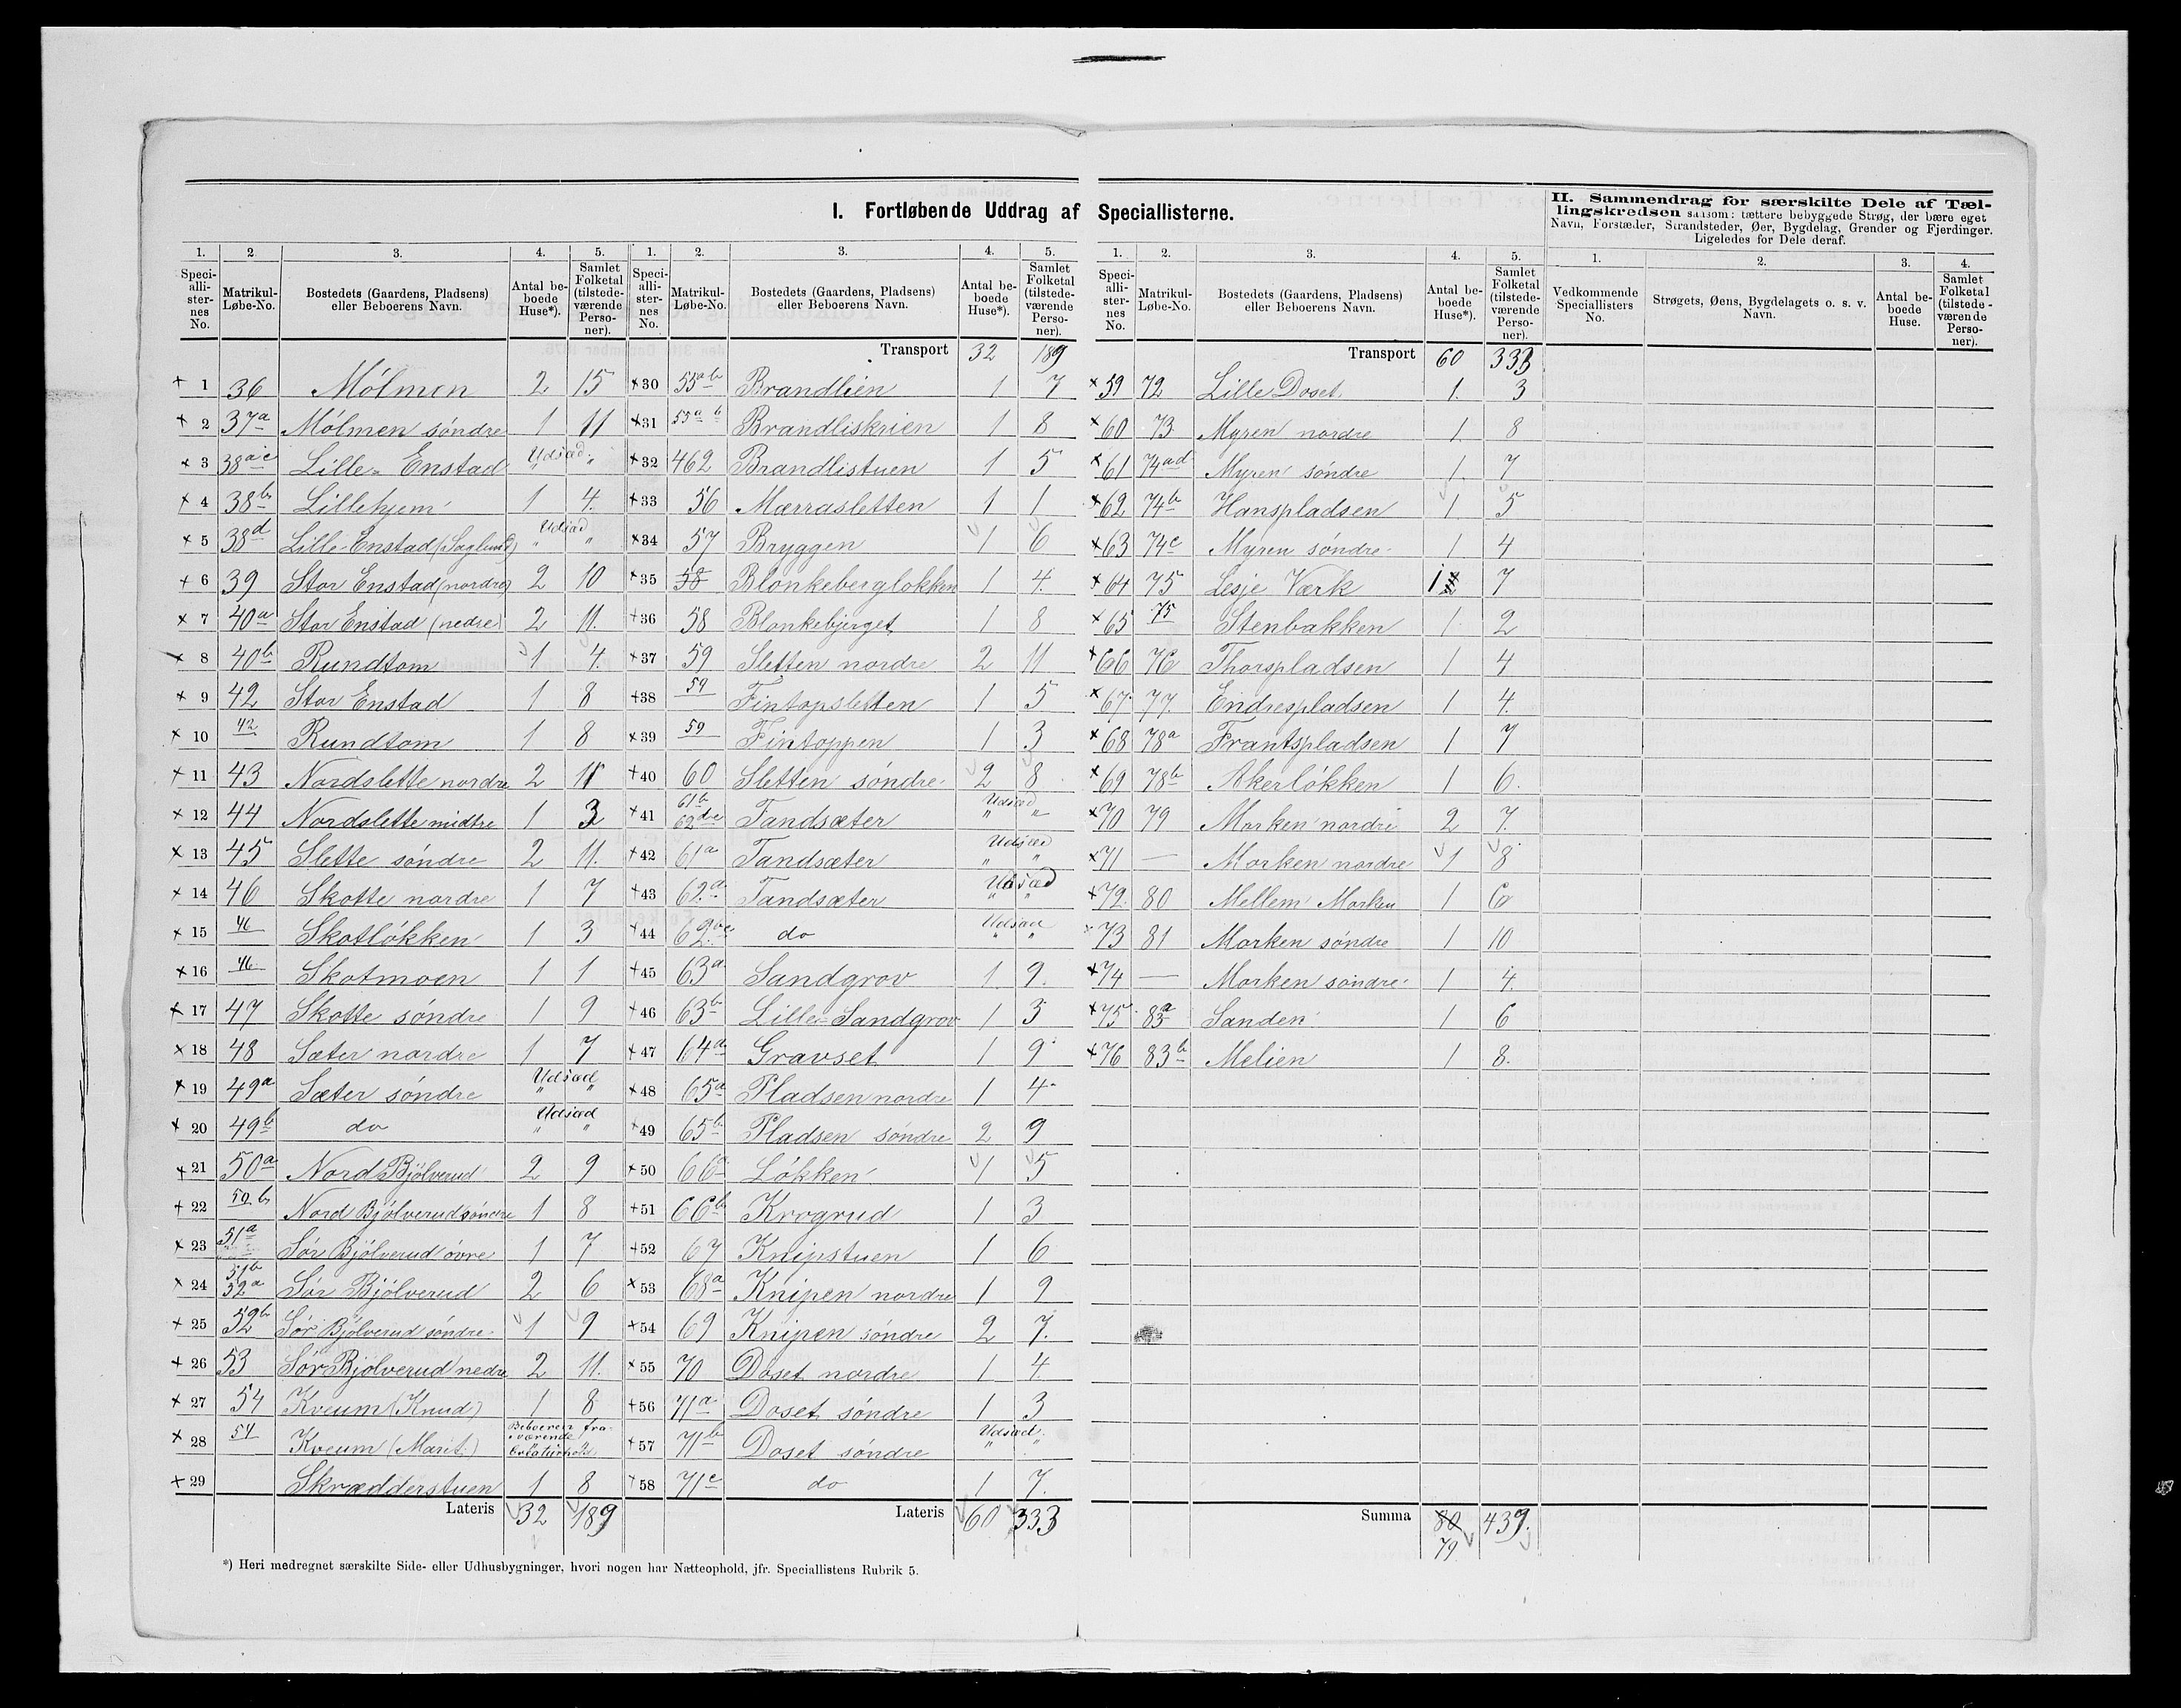 I. Fortløbende Uddrag af Speciallisterne.
II. Sammendrag for særskilte Dele af Tæl-
lingskredsen saasom: tættere bebyggede Strøg, der bære eget
Navn, Forstæder, Strandsteder, Øer, Bygdelag, Grender og Fjerdinger.
Ligeledes for Dele deraf.
1. 2 3. 4. 5.
Speci-alli-ster-nes No. Matrikul-Løbe-No. Bostedets (Gaardens, Pladsens) eller Beboerens Navn. Antal be-boede Huse*). Samlet Folketal (tilstede-værende Perso-ner).
1 36 Mólmen 2 15
2 37a Mólmen söndre 1 11
3 38ac Lille-Enstad Udsæd " "
4 38b Lillehjem 1 4.
5 38d Lille-Enstad (Saglund) Udsæd " "
6 39 Stor Enstad (nordre) 2 10
7 40a Stor Enstad (nedre) 2 11.
8 40b Rundtom 1 4.
9 42 Stor Enstad 1 8
10 42 Rundtom 1 8
11 43 Nordslette nordre 2 11
12 44 Nordslette midtre 1 3
13 45 Slette söndre 2 11.
14 46 Skotte nordre 1 7
15 46 Skotlókken 1 3
16 46 Skotmoen 1 1
17 47 Skotte söndre 1 9
18 48 Sæter nordre 1 7
19 49a Sæter söndre Udsæd " "
20 49b do Udsæd " "
21 50a Nord Bjölverud 2 9
22 50b Nord Bjölverud söndre 1 8
23 51a Sör Bjölverud övre 1 7
24 51b 52a Sör Bjölverud 2 6
25 52b Sör Bjölverud söndre 1 9
26 53 Sör Bjölverud nedre 2 11.
27 54 Kveum (Knud) 1 8
28 54 Kveum (Marit) Beboeren fra-værende
29 Skrædderstuen 1 8
Lateris 32 189
1. 2. 3. 4. 5.
Speci-alli-ster-nes No. Matrikul-Løbe-No. Bostedets (Gaardens, Pladsens) eller Beboerens Navn. Antal be-boede Huse*). Samlet Folketal (tilstede-værende Perso-ner).
Transport 32 189
30 55ab Brandlien 1 7
31 55ab Brandliskrien 1 8
32 462 Brandlistuen 1 5
33 56 Mærrasletten 1 1
34 57 Bryggen 1 6
35 58 Blonkeberglokken 1 4.
36 58 Blonkebjerget 1 8
37 59 Sletten nordre 2 11
38 59 Fintopsletten 1 5
39 59 Fintoppen 1 3
40 60 Sletten söndre 2 8
41 61b 62de Tandsæter Udsæd " "
42 61a Tandsæter Udsæd " "
43 62a Tandsæter Udsæd " "
44 62bc do Udsæd " "
45 63a Sandgrov 1. 9.
46 63b Lille-Sandgrov 1 3
47 64a Gravset 1 9
48 65a Pladsen nordre 1 4
49 65b Pladsen söndre 2 9
50 66a Lökken 1 5
51 66b Krogrud 1 3
52 67 Knipstuen 1 6
53 68a Knipen nordre 1 9
54 69 Knipen söndre 2 7.
55 70 Doset nordre 1 4.
56 71a Doset söndre 1 3
57 71b Doset söndre Udsæd " "
58 71c do 1 7.
Lateris 60 333
1. 2. 3. 4. 5.
Speci-alli-ster-nes No. Matrikul-Løbe-No. Bostedets (Gaardens, Pladsens) eller Beboerens Navn. Antal be-boede Huse*). Samlet Folketal (tilstede-værende Perso-ner).
Transport 60 333
59 72 Lille Doset 1. 3
60 73 Myren nordre 1. 8
61 74ad Myren söndre 1. 7
62 74b Hanspladsen 1. 5
63 74c Myren söndre 1 4
64 75 Lesje Værk 1 7
65 75 Stenbakken 1 2
66 76 Thorspladsen 1 4
67 77. Endrespladsen 1 4.
68 78a Frantspladsen 1 7
69 78b Akerlökken 1 6.
70 79 Morken nordre 2 7.
71 — Morken nordre 1 8
72 80 Mellem Morken 1 6
73 81 Morken söndre 1 10
74 — Morken söndre 1 4.
75 83a Sanden 1 6
76 83b Melien 1 8.
Summa 80 439.
79
1. 2. 3. 4.
Vedkommende Speciallisters No. Strøgets, Øens, Bygdelagets o. s. v. Navn. Antal be-boede Huse. Samlet Folketal (tilstede-værende Perso-ner).
*) Heri medregnet særskilte Side- eller Udhusbygninger, hvori nogen har Natteophold, jfr. Speciallistens Rubrik 5.